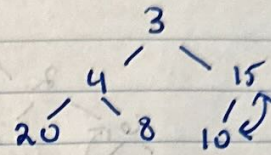 3
4 15
20 8 10